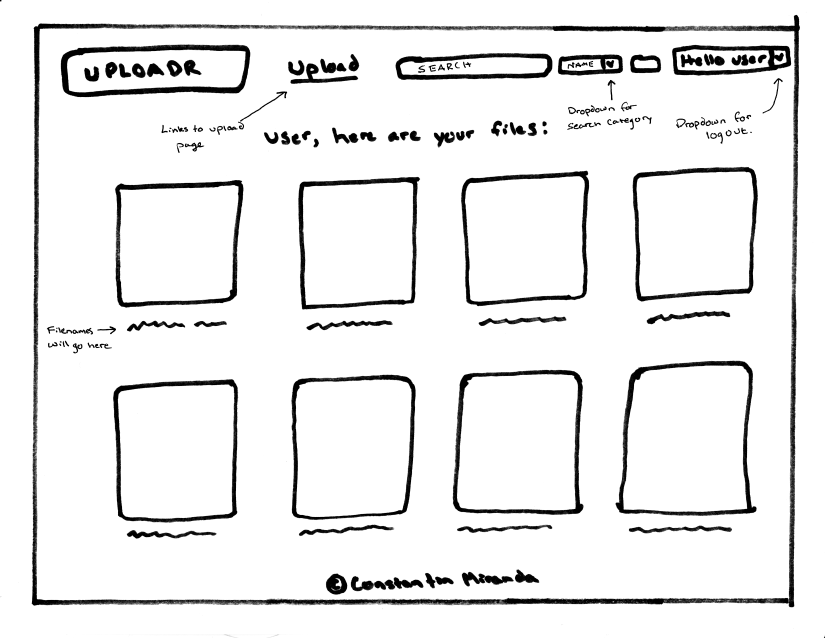 UPLOADR
Upload
SEARCH
NAME
Hello user
Links to upload
page
Dropdown for
search category
Dropdown for
logout.
user, here are your files:
Filenames
will go here
© Constantin Miranda